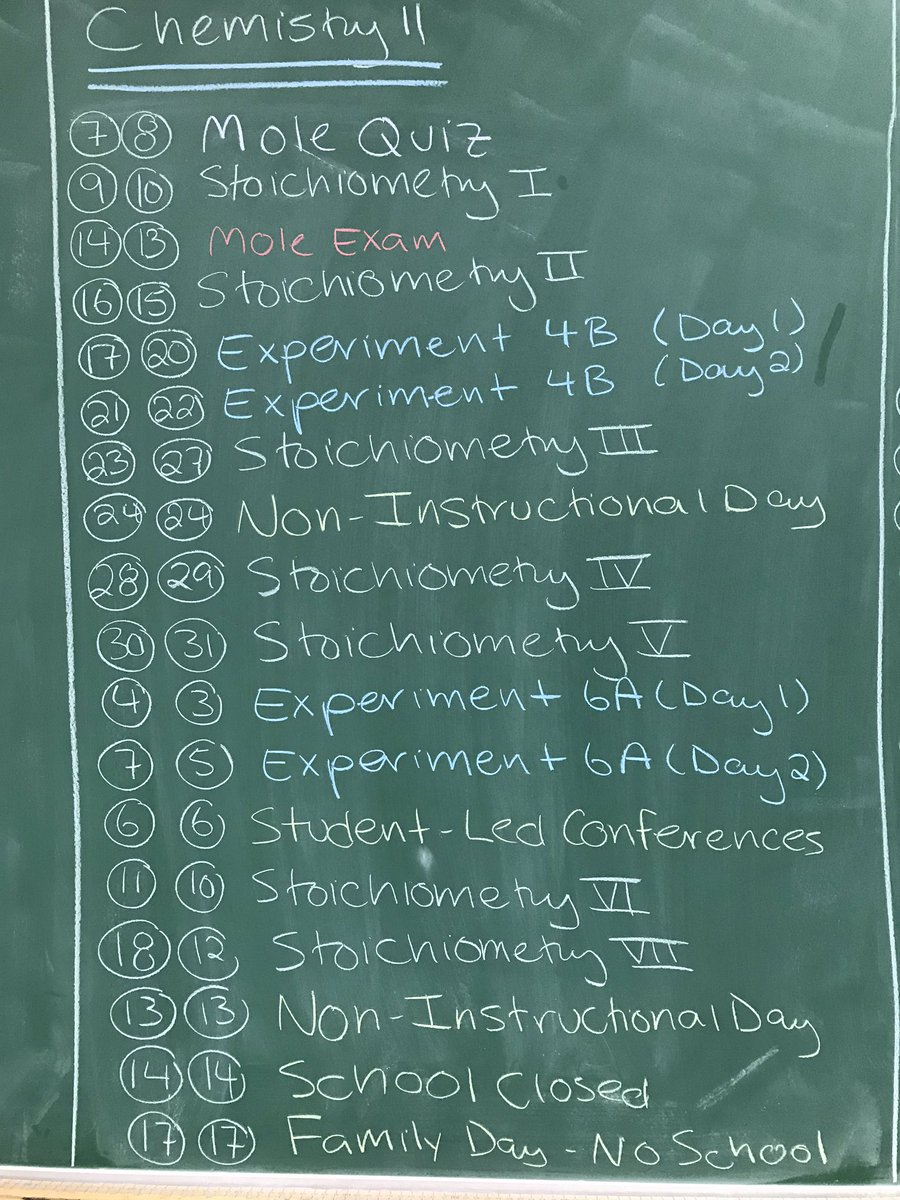 Chemistry 11
7 8 Mole Quiz
9 10 Stoichiometry I
14 13 Mole Exam
16 15 Stoichiometry II
17 20 Experiment 4B (Day 1)
21 22 Experiment 4B (Day 2)
23 27 Stoichiometry III
24 24 Non-Instructional Day
28 29 Stoichiometry IV
30 31 Stoichiometry V
4 3 Experiment 6A (Day 1)
7 5 Experiment 6A (Day 2)
6 6 Student-Led Conferences
11 10 Stoichiometry VI
18 12 Stoichiometry VII
13 13 Non-Instructional Day
14 14 School Closed
17 17 Family Day - No School